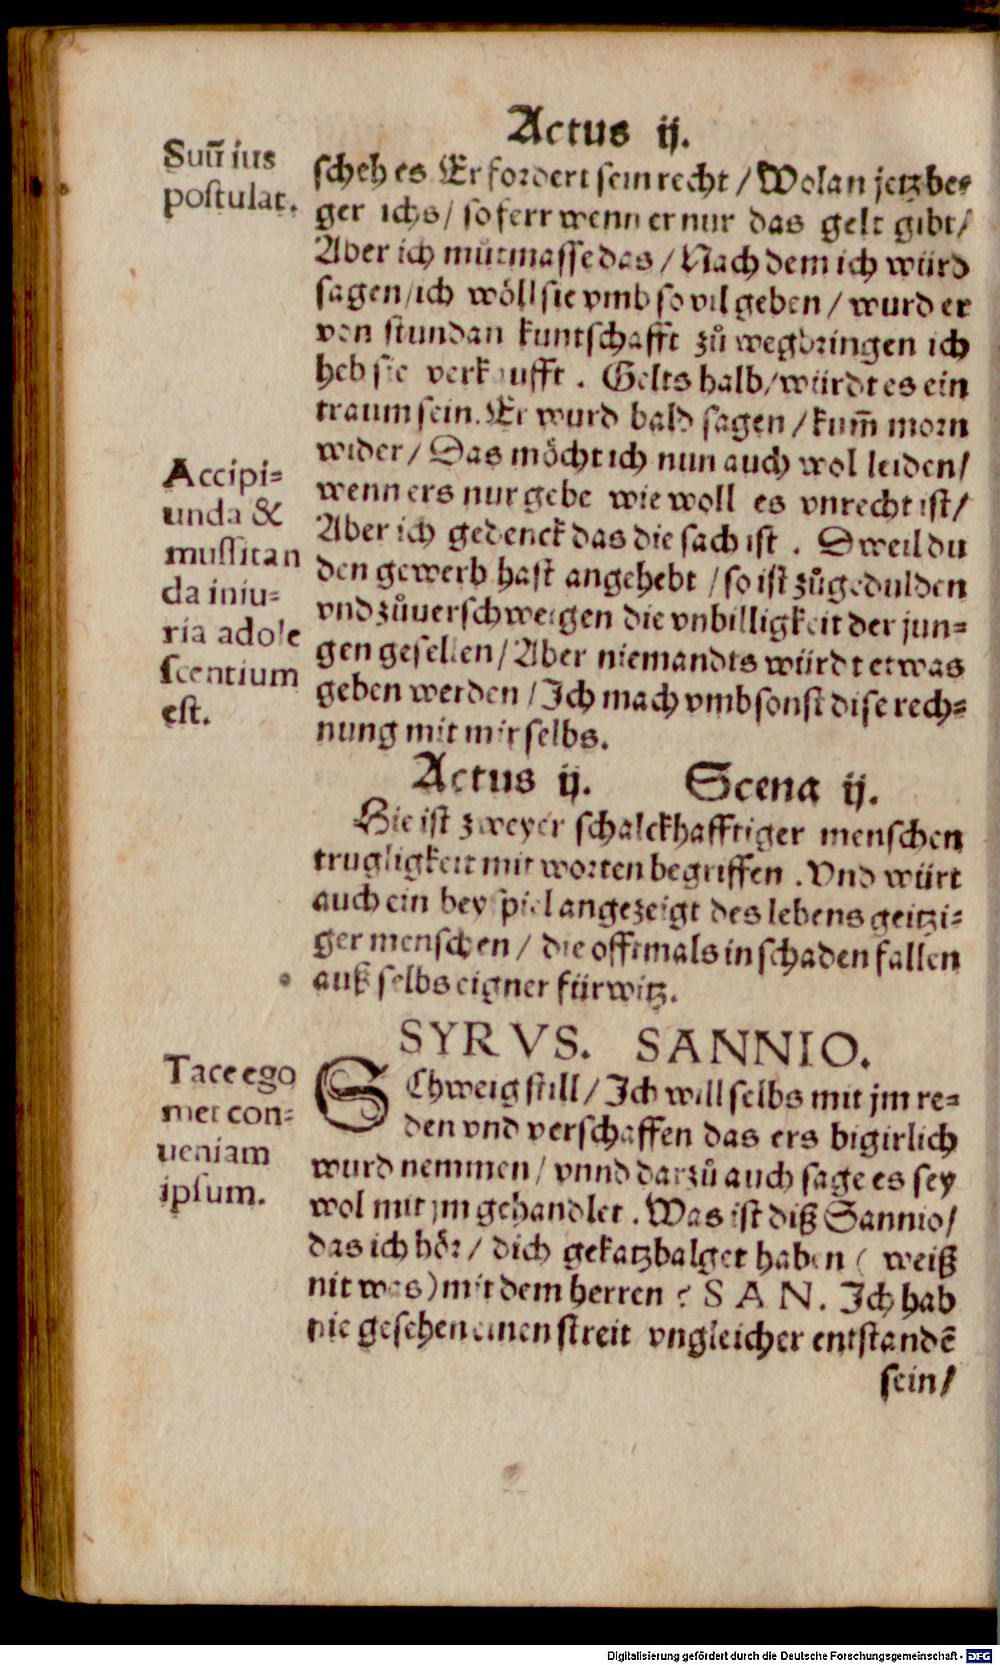 Actus ij.
Suū ius
postulat.
scheh es Er fordert sein recht / Wolan jetz be-
ger ichs / so ferr wenn er nur das gelt gibt /
Aber ich můtmasse das / Nach dem ich würd
sagen / ich wöll sie vmb so vil geben / wurd er
von stundan kuntschafft zů wegbringen ich
heb sie verkaufft . Gelts halb / würdt es ein
traum sein. Er wurd bald sagen / kum̄ morn
wider / Das möcht ich nun auch wol leiden /
wenn ers nur gebe wie woll es vnrecht ist /
Aber ich gedenck das die sach ist . Dweil du
den gewerb hast angehebt / so ist zůgedulden
vnd zůuerschweigen die vnbilligkeit der jun-
gen gesellen / Aber niemandts würdt etwas
geben werden / Ich mach vmbsonst dise rech-
nung mit mir selbs.
Accipi-
unda &
mussitan
da iniu-
ria adole
scentium
est.
Actus ij. Scena ij.
Hie ist zweyer schalckhafftiger menschen
trugligkeit mit worten begriffen . Vnd würt
auch ein beyspiel angezeigt des lebens geitzi-
ger menschen / die offtmals in schaden fallen
auß selbs eigner fürwitz.
SYRVS. SANNIO.
Tace ego
met con-
ueniam
ipsum.
SChweig still / Ich will selbs mit jm re-
den vnd verschaffen das ers bigirlich
wurd nemmen / vnnd darzů auch sage es sey
wol mit jm gehandlet . Was ist diß Sannio /
das ich hör / dich gekatzbalget haben ( weiß
nit was) mit dem herren ? SAN. Ich hab
nie gesehen einen streit vngleicher entstandē
sein /
Digitalisierung gefördert durch die Deutsche Forschungsgemeinschaft - DFG